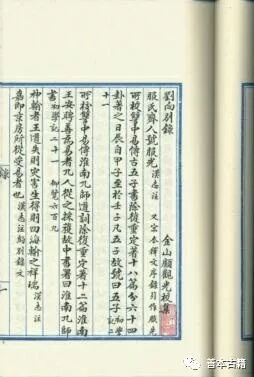 劉向別錄
金山顧觀光校集
服氏齊人號服光漢志注 又宣本釋文序錄引作服先
所校讐中易傳古五子書除復重定著十八篇分六十四
卦著之日辰自甲子至於壬子凡五子故號曰五子初學
十一
所校讐中易傳淮南九師道訓除復重定著十二篇淮南
王安聘善爲易者九人從之採獲故中書署曰淮南九師
書初學記二十一 御覽六百九
神輸者王道失則災害生得則四海輸之祥瑞漢志注
嘉即京房所從受易者也漢志注
別錄文
錄
善本古籍